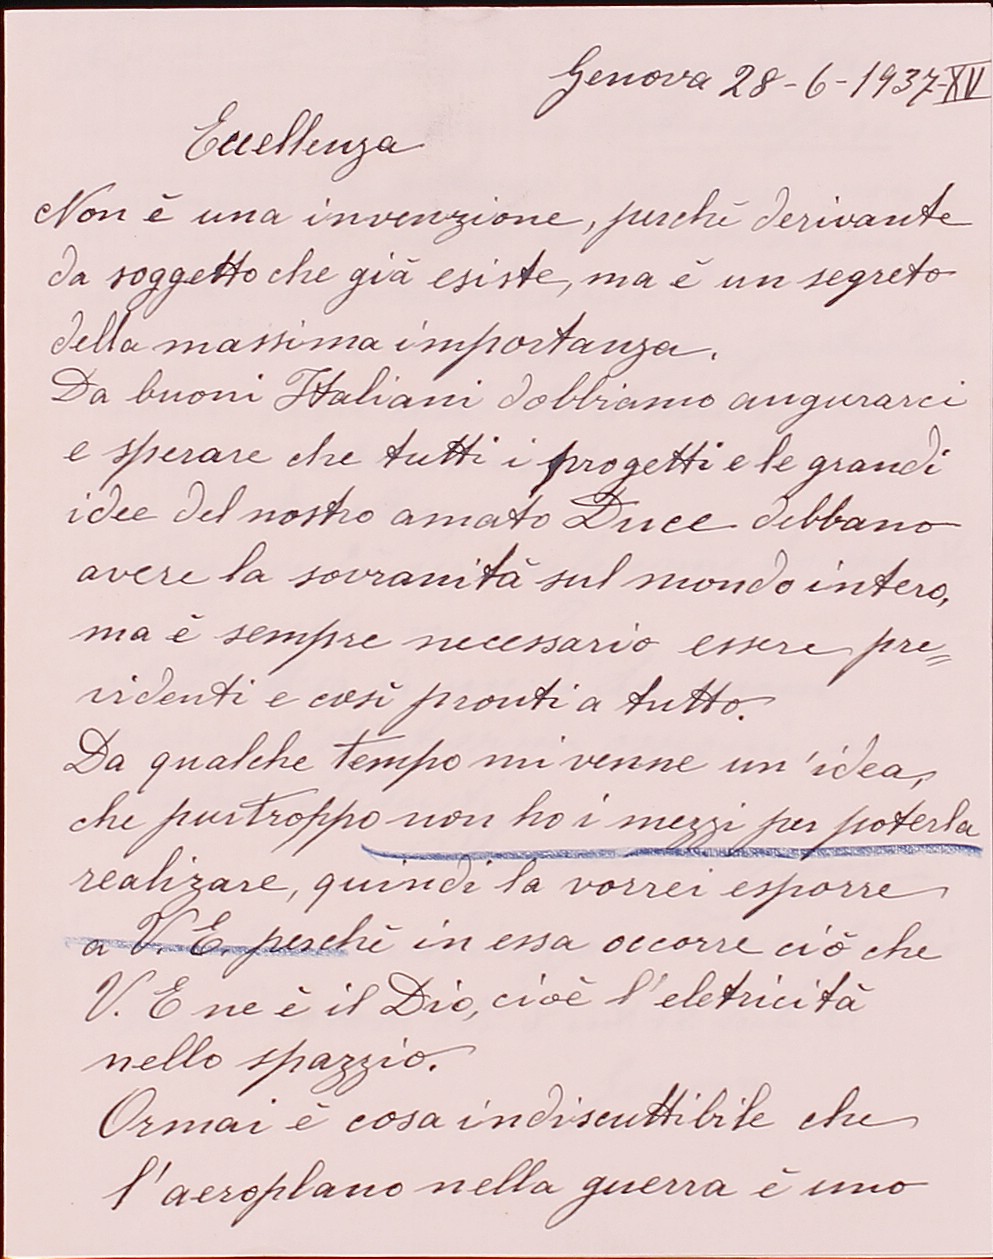 Genova 28-6-1937-XV
Eccellenza
Non è una invenzione, perchè derivante
da soggetto che già esiste, ma è un segreto
della massima importanza.
Da buoni Italiani dobbiamo augurarci
e sperare che tutti i progetti e le grandi
idee del nostro amato Duce debbano
avere la sovranità sul mondo intero,
ma è sempre necessario essere pre=
videnti e così pronti a tutto.
Da qualche tempo mi venne un'idea,
che purtroppo non ho i mezzi per poterla
realizare, quindi la vorrei esporre
a V. E. perchè in essa occorre ciò che
V. E ne è il Dio, cioè l'eletricità
nello spazzio.
Ormai è cosa indiscuttibile che
l'aeroplano nella guerra è uno